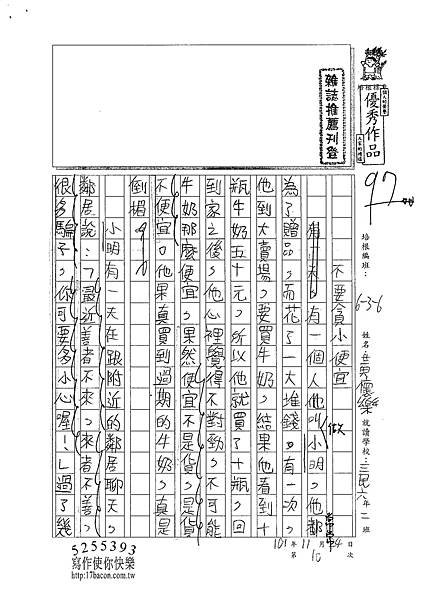 雜誌推薦刊登
優秀作品
97
培根編班：636
姓名
就讀學校：三民六年二班
101年11月24日
第10次
不要貪小便宜
有一天，有一個人他叫做小明，他都
為了贈品，而花了一大堆錢。有一次，
他到大賣場，要買牛奶，結果他看到十
瓶牛奶五十元，所以他就買了十瓶，回
到家之後，他心裡覺得不對勁，不可能
牛奶那麼便宜，果然便宜不是貨，是貨
不便宜。他果真買到過期的牛奶，真是
倒楣。
小明有一天在跟附近的鄰居聊天，
鄰居說：「最近善者不來，來者不善，
很多騙子，你可要多小心喔！」過了幾
5255393
寫作使你快樂
http://17bacon.com.tw